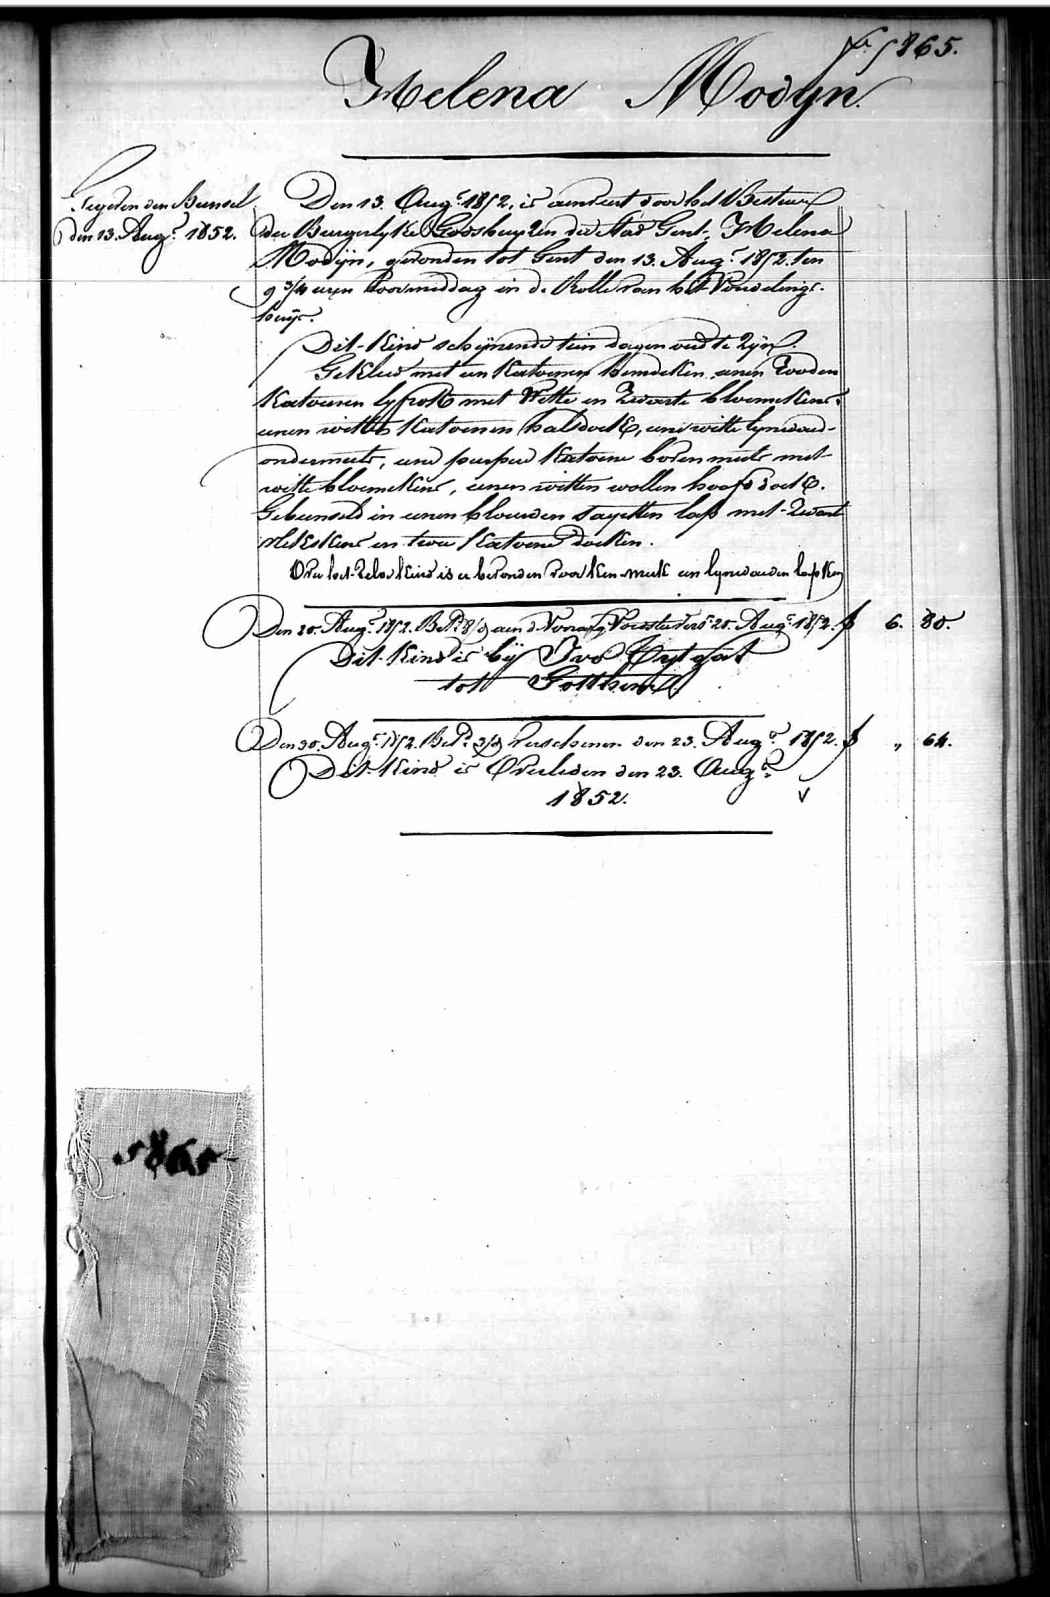 N.º 5865.
Helena Modyn.
Gegeven den Bunsel
den 13. Aug.t 1852.
Den 13. Aug.t 1852, is aenveert door het Bestuur
der Burgerlyke Godshuyzen der stad Gent, Helena
Modyn, gevonden tot Gent den 13. Aug.t 1852. ten
9 3/4 uren voormiddag in de Rolle van het Vondelings-
huys.
Dit kind schynende tien dagen oud te zyn.
Gekleed met een katoenen hemdeken, eenen rooden
katoenen lyfrok met witte en zwarte bloemekens,
eenen witten katoenen halsdoek, eene witte lynwaed-
ondermuts, eene purper katoene bovenmuts met
witte bloemekens, eenen witten wollen hoofddoek.
Gebunseld in eenen blauwen sayetten lap met zwart
vlekskens en twee katoene doeken.
Over het zelve kind is er bevonden voor ken-merk een lynwaeden lapken
Den 20. Aug.t 1852. Bet.d 8/9 aen d. Voesters 20. Aug.t 1852. f 6. 80.
Dit kind is by Ivo
tot
Den 30. Aug.t 1852. Bet.d 3/9 verschenen den 23. Aug.t 1852. f " 64.
Dit kind is Overleden den 23. Aug.t
1852. V
5865